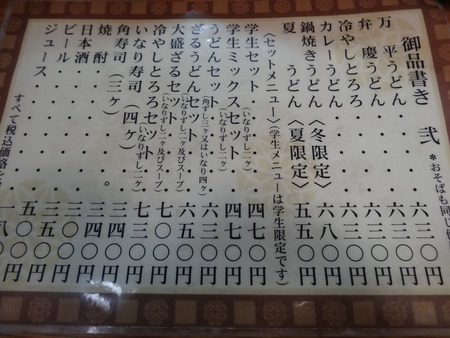 御品書き 弐 *おそばも同じ
万平うどん・・・・六三〇円
弁慶うどん・・・・六三〇円
冷やしとろろ・・・六三〇円
カレーうどん・・・六三〇円
鍋焼きうどん〈冬限定〉六八〇円
夏うどん〈夏限定〉五五〇円
〈セットメニュー〉(学生メニューは学生限定です)
学生セット(いなりずし二ヶ)・・四七〇円
学生ミックスセット・・四七〇円
(角ずし三ヶ又はいなり四ヶ)
うどんセット(いなりずし二ヶ)・・六三〇円
ざるうどんセット・・六五〇円
(いなりずし二ヶ及びスープ)
大盛ざるセット
(いなりずし二ヶ及びスープ)
冷やしとろろセット(いなりずし二ヶ)・七三〇円
いなり寿司(四ヶ)・・三四〇円
角寿司(三ヶ)・・・三四〇円
焼酎
日本酒
ビール
ジュース
すべて税込価格